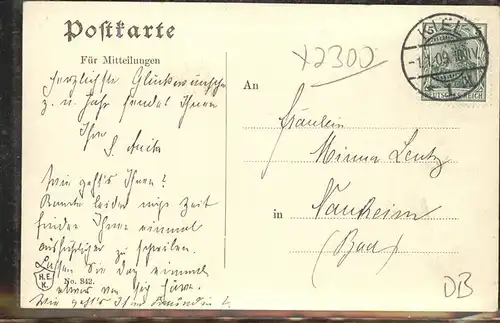 Postkarte
Für Mitteilungen
Herzlichste Glückwünsche
z. n. Jahr sendet Ihnen
Ihre
S. Anita
Wie geht's Ihnen?
Konnte leider nicht Zeit
finden Ihnen einmal
ausführlicher zu schreiben.
Lassen Sie doch einmal
etwas von sich hören.
Wie geht's Ihrer
H.E.
K.
No. 842.
x2300
An
Fräulein
Minna Lentz
in Nauheim
(Bad)
KIEL
-1.1.09
1
DB